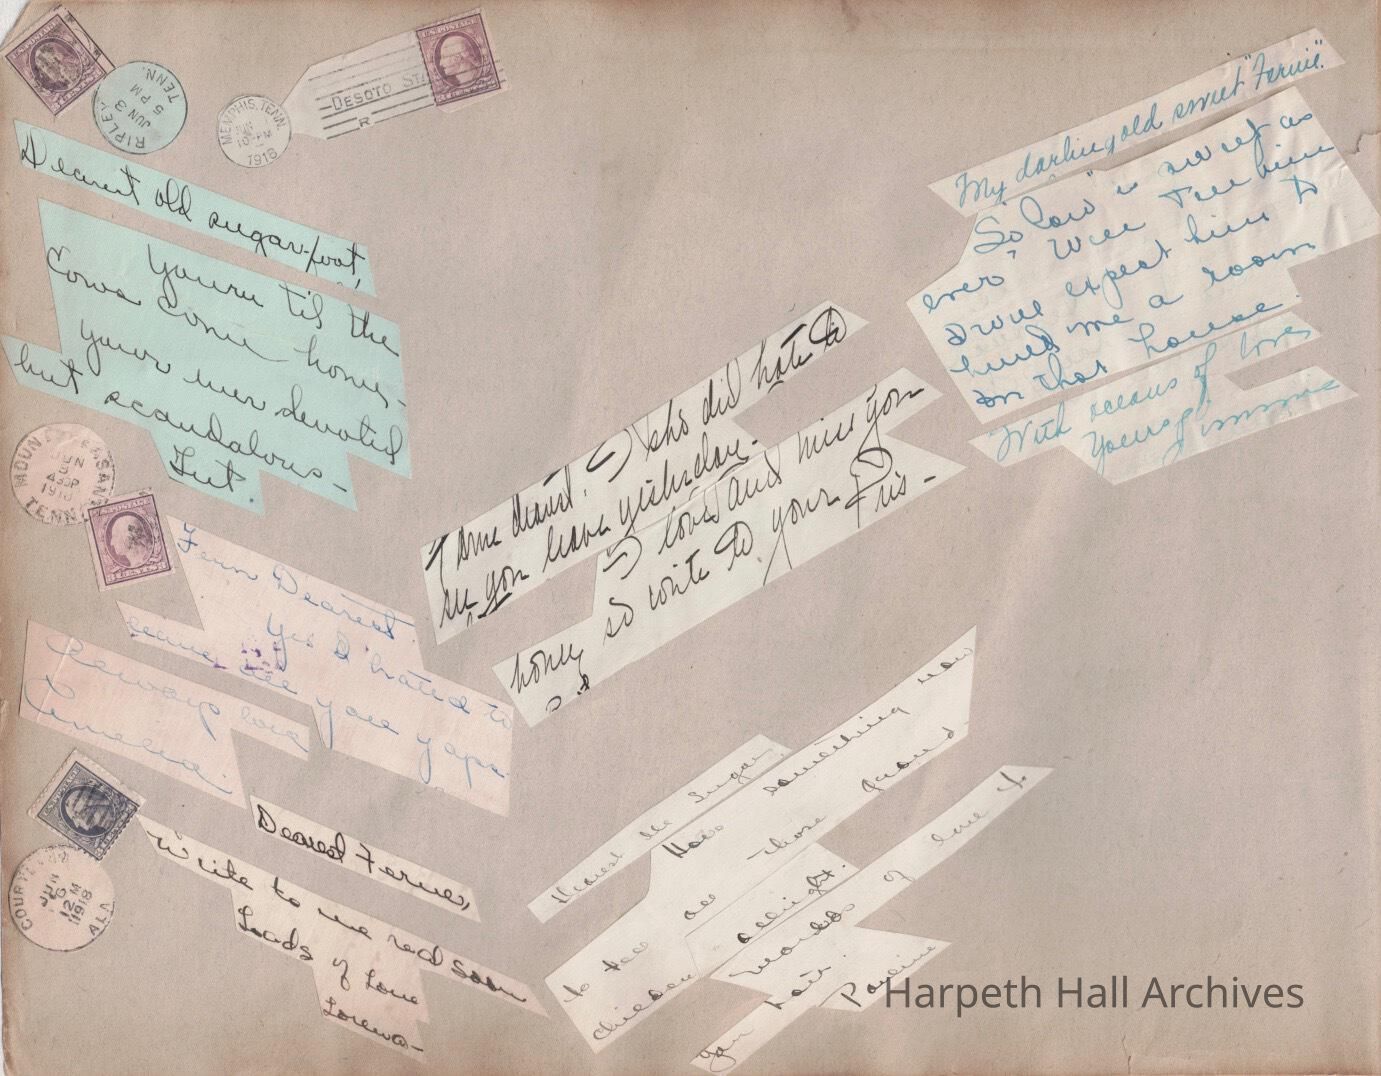 U.S. POSTAGE
RIPLEY
JUN 3
5 PM
TENN.
MEMPHIS, TENN.
JUN
10-PM
1918
DESOTO STA
R
Dearest old sugar-foot,
Yours til the
Cows come home,-
your ever devoted
but scandalous-
MOUNT PLEASANT
JUN
430P
1918
TENN.
Fern Dearest
Yes I hated to
leave all you yaps.
Always love
Amelia.
COURTLAND
JUN
12 M
1918
ALA
Dearest Ferne,
Write to me real soon
Loads of Love
Lorena-
dearest. I sho did hate to
see you leave yesterday.
I love and miss you
honey so write to your Pris-
My darling old sweet "Fernie."
"So Low" is sweet as
ever" Will Tell him
I will expect him to
build me a room
on that house.
With oceans of love
Yours,
Dearest Sugar,
Have something new
to tell all those grand
children alright.
Worlds of love to
you
Pauline
Harpeth Hall Archives